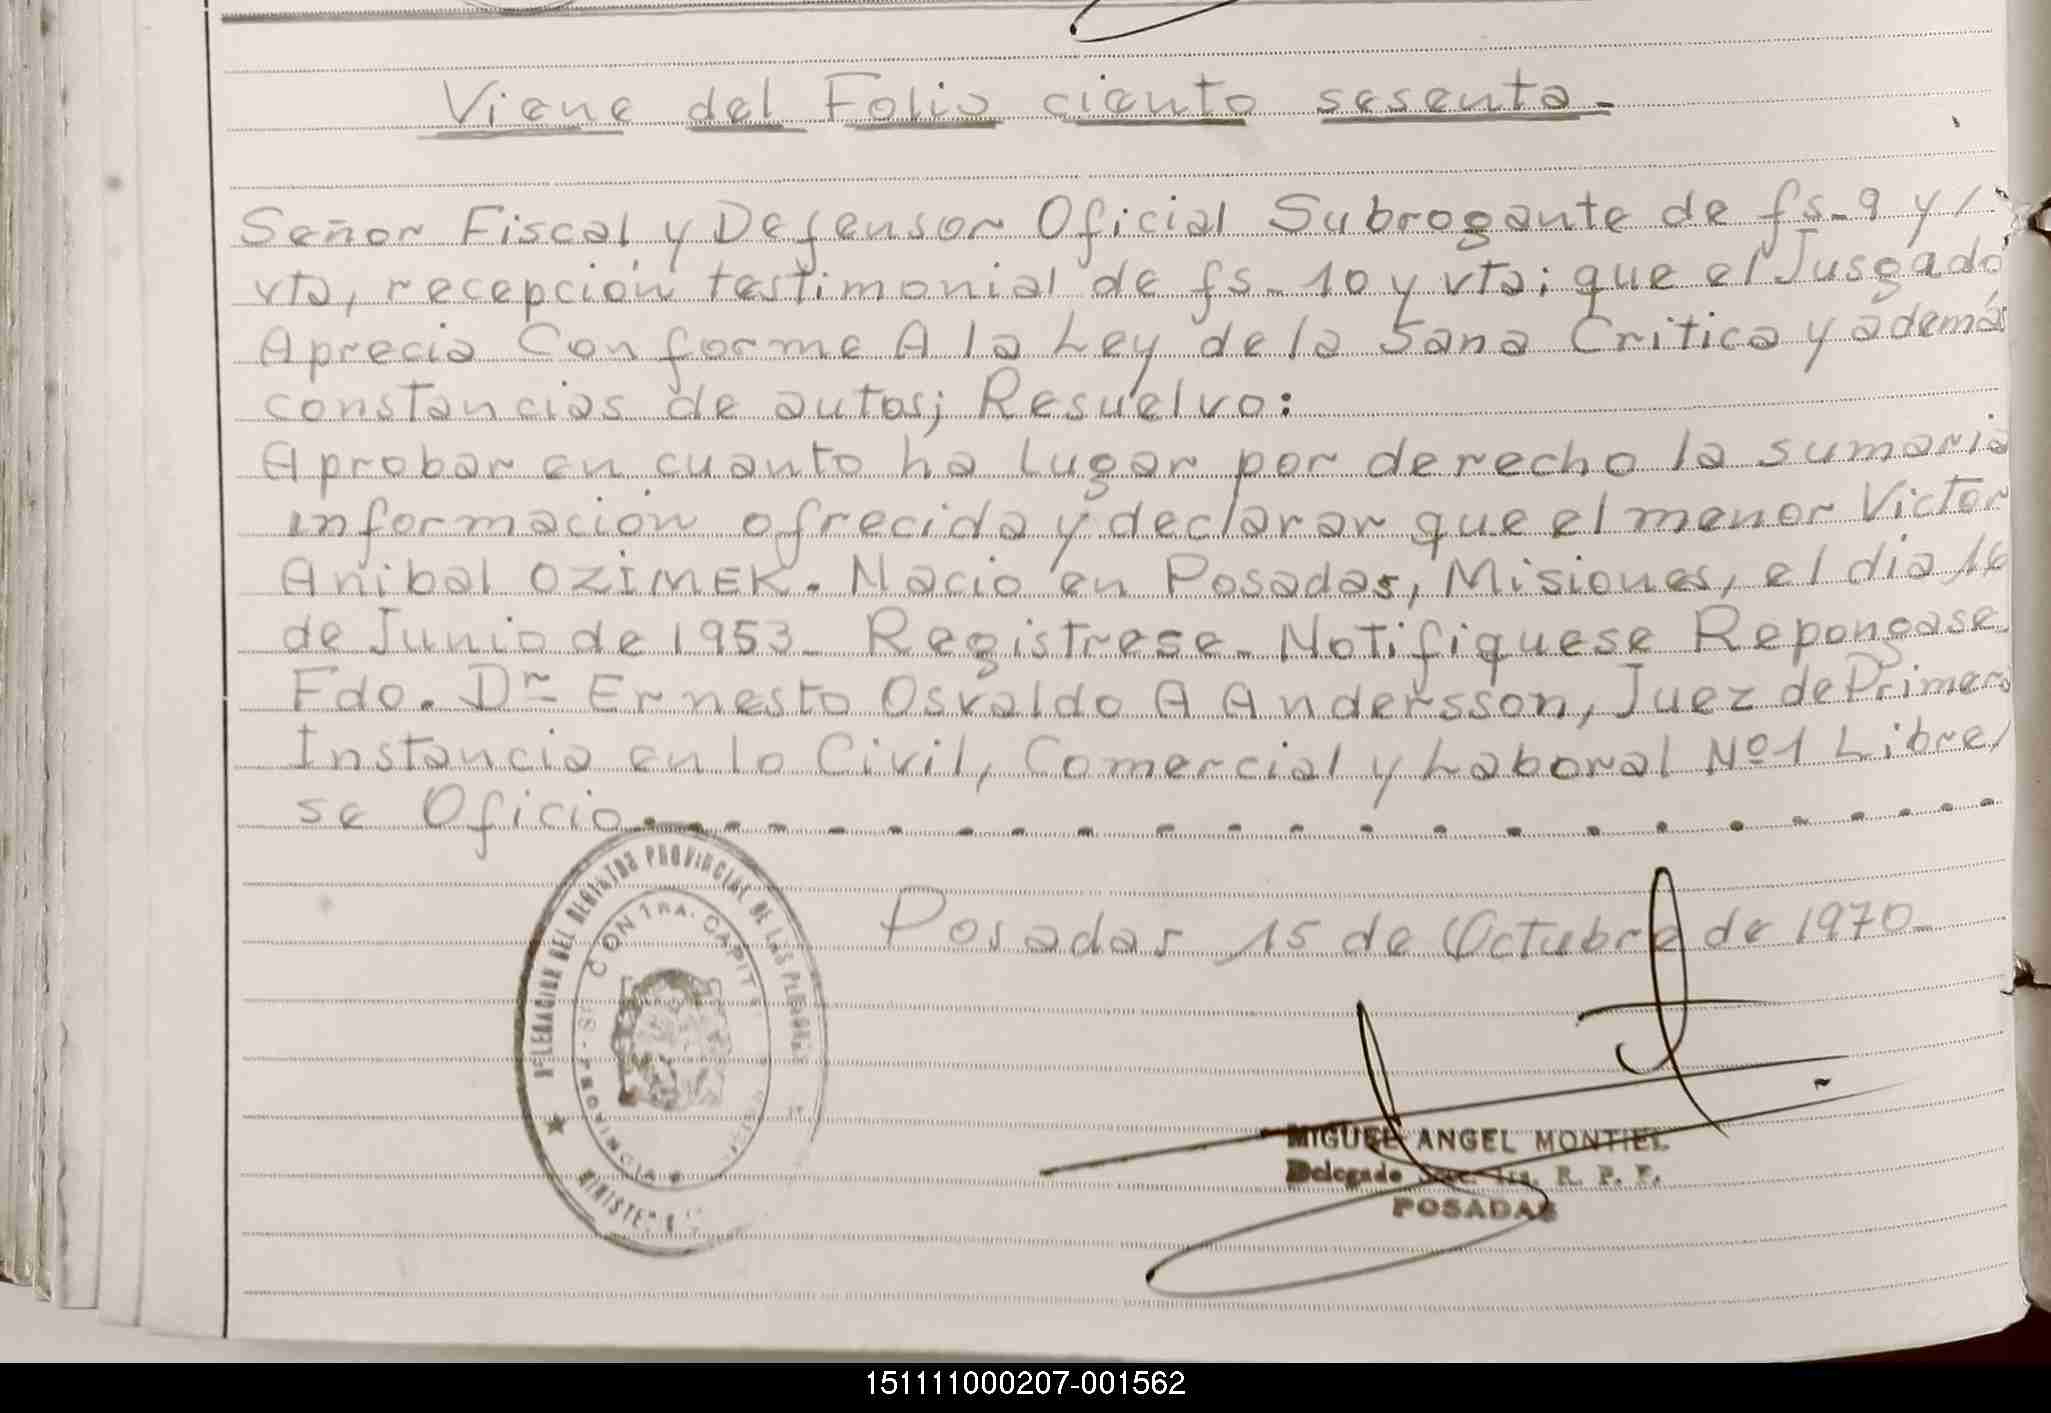 Viene del Folio ciento sesenta.-
Señor Fiscal y Defensor Oficial Subrogante de fs. 9 y /
vta, recepción testimonial de fs. 10 y vta; que el Jusgado
Aprecia Conforme A la Ley de la Sana Critica y además
constancias de autos; Resuelvo:
Aprobar en cuanto ha lugar por derecho la sumaria
información ofrecida y declarar que el menor Victor
Anibal OZIMEK. Nacio en Posadas, Misiones, el dia 16
de Junio de 1953_ Registrese_ Notifiquese Repongase_
Fdo. Dr Ernesto Osvaldo A Andersson, Juez de Primera
Instancia en lo Civil, Comercial y Laboral Nº1 Libre/
se Oficio
DELEGACION DEL REGISTRO PROVINCIAL DE LAS PERSONAS
Posadas 15 de Octubre de 1970_
MIGUEL ANGEL MONTIEL
Delegado R. P. P.
POSADAS
151111000207-001562